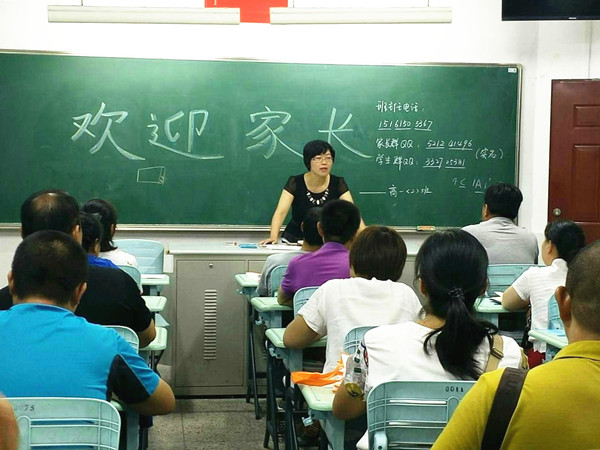 欢迎家长
班主任电话：
15161503367
家长群QQ：521241496
学生群QQ：332725381（实名）
——高一<2>班
0011